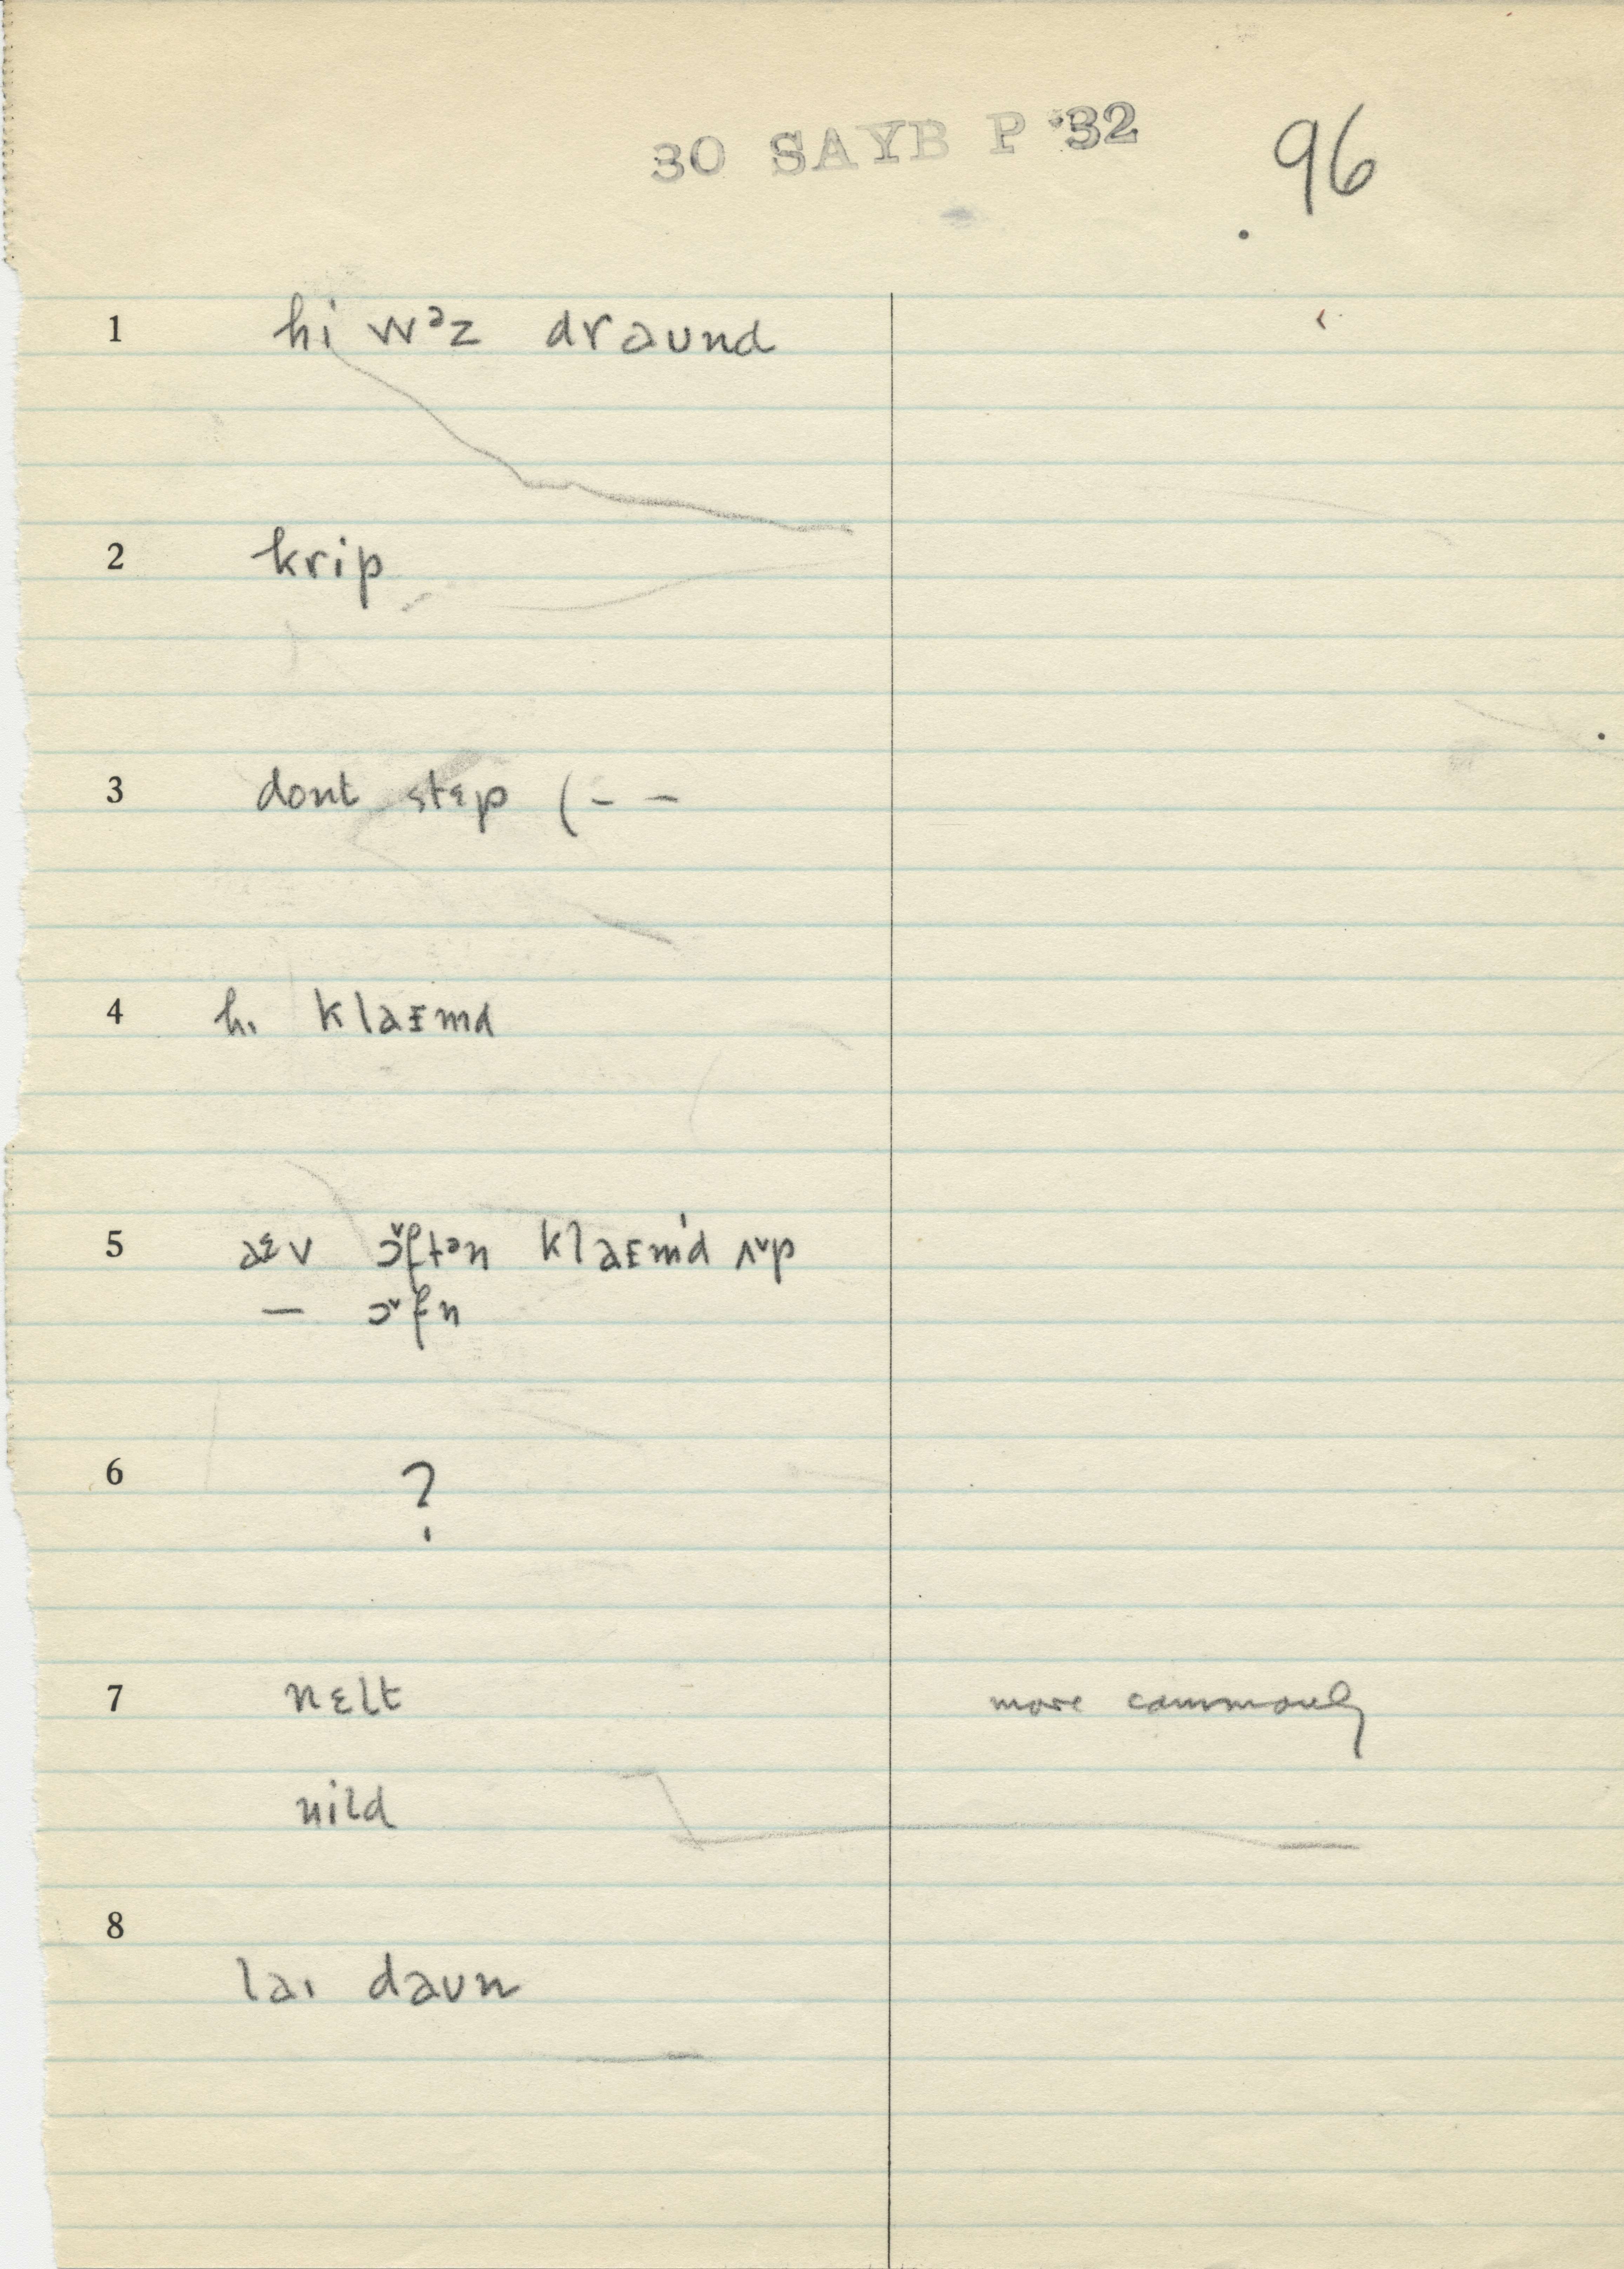 30 SAYB P '32 96
1 hi wᵊz draund
2 krip
3 dont stɛp (- -
4 hɩ klaᴇmd
5 aᵋv ɔ˅ftᵊn klaᴇm'd ʌ˅p
— ɔ˅fn
6 ?
7 nɛlt more commonly
nild
8
laɩ daun